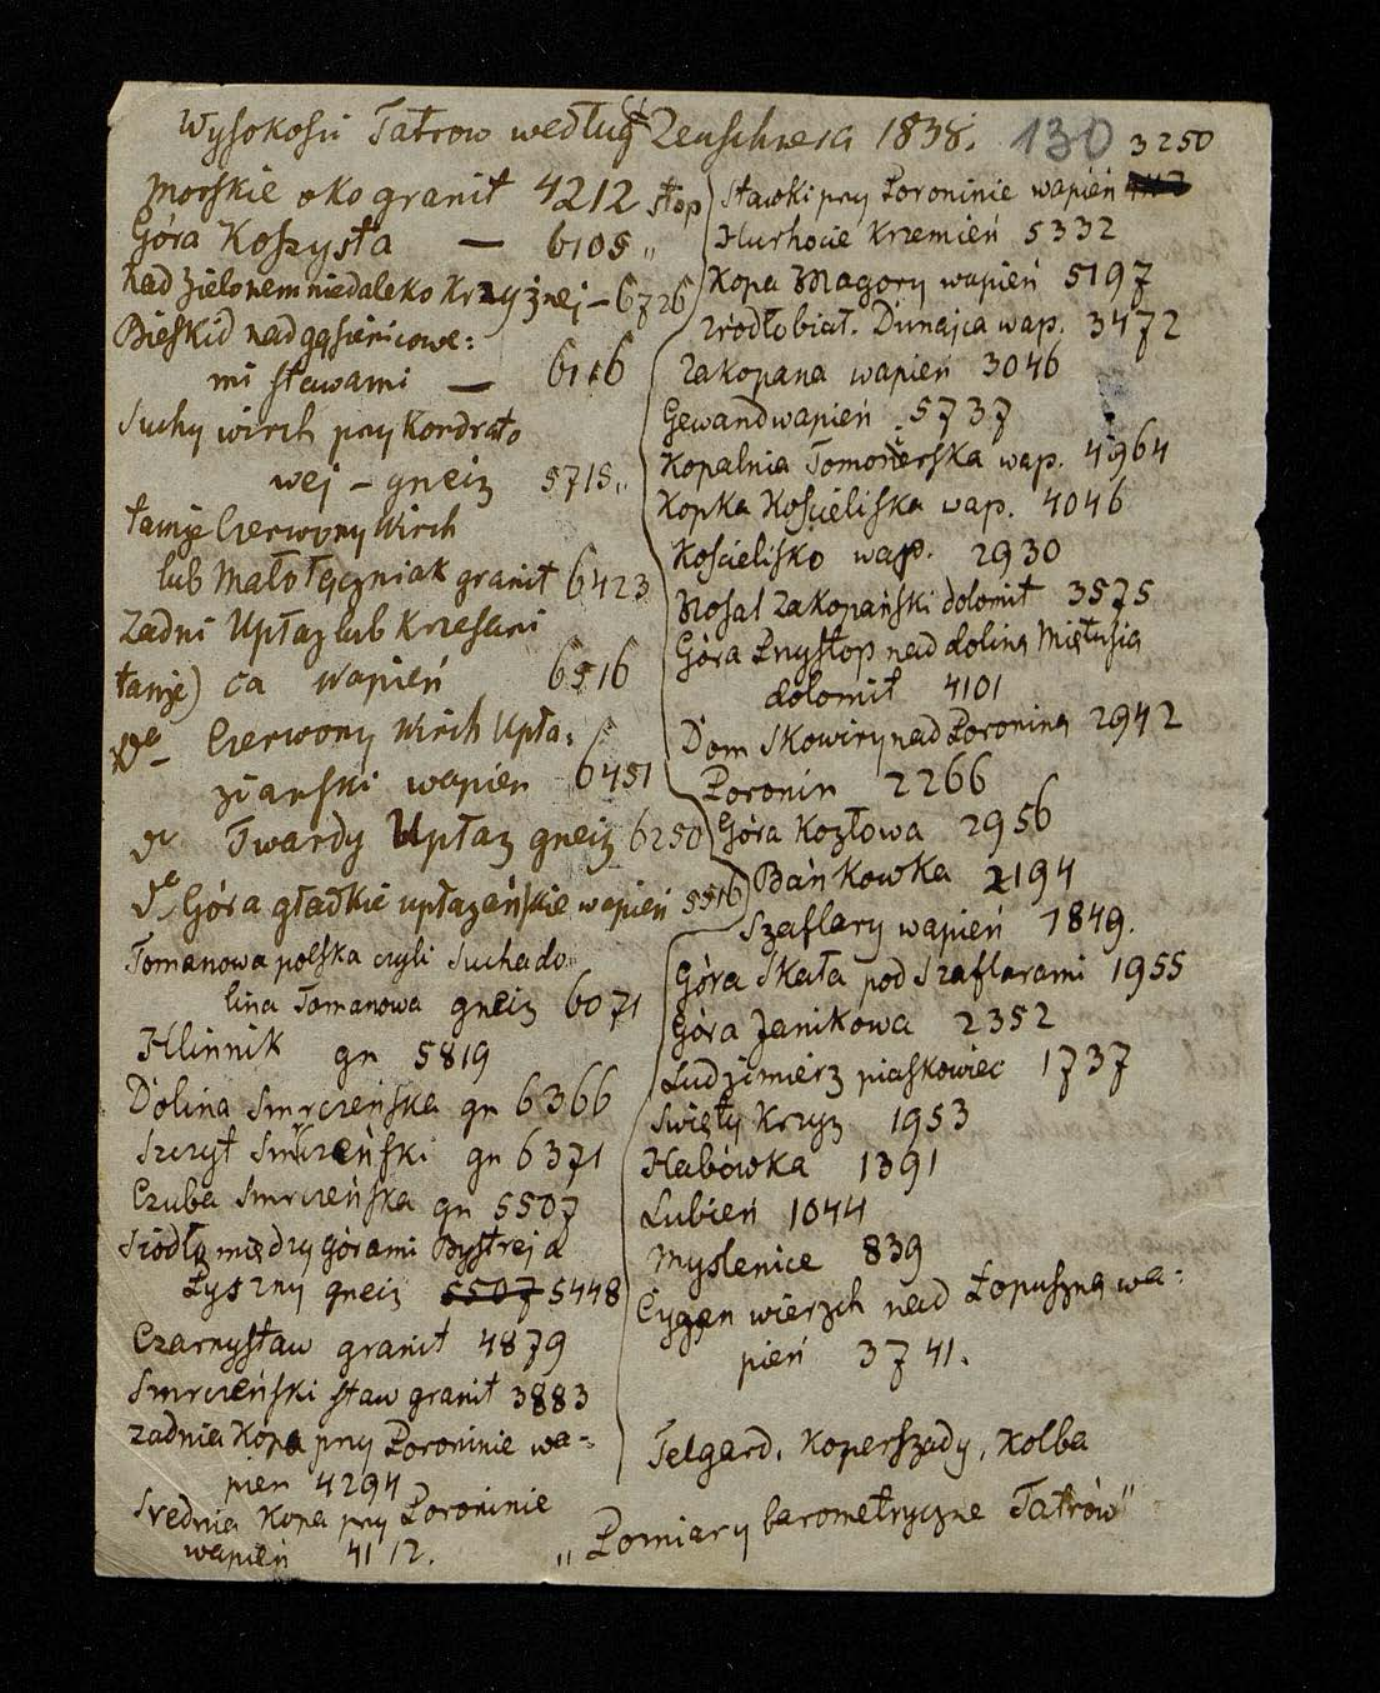 Wysokości Tatrow według Zeuschnera 1838. 130
Morskie oko granit 4212 stop
Góra Koszysta — 6105 „
Nad Zielonem niedaleko Krzyżnej – 6726
Bieskid nad gąsienicowe:
mi stawami — 6116
Suchy wirch przy Kondrato
wej – gneiz 5715 „
tamże Czerwony Wirch
lub Małołęczniak granit 6423
Zadni Upłaz lub Krzesani
tamże) ca wapień 6516
do Czerwony Wirch Upła:
ziański wapien 6451
do Twardy Upłaz gneiz 6250
do Góra gładkie upłazeńskie wapień 5516
Tomanowa polska czyli Sucha do„
lina Tomanowa gneiz 6071
Hlinnik gn 5819
Dolina Smrczeńska gn 6366
Szczyt Smrczeński gn 6371
Czuba Smrczeńska gn 5507
Siodło między górami Bystrej a
Pyszny gneiz 5507 5448
Czarny staw granit 4879
Smrczeński staw granit 3883
Zadnia Kopa przy Poroninie wa-
pien 4294
Srednia Kopa przy Poroninie
wapień 4112.
3250
Stawki przy Poroninie wapień
Hurhocie Krzemień 5332
Kopa Magory wapień 5197
Zródło biał. Dunajca wap. 3472
Zakopana wapień 3046
Gewand wapień 5737
Kopalnia Tomonerska wap. 4964
Kopka Kościeliska wap. 4046
Kościelisko wap. 2930
Nosal Zakopański dolomit 3575
Góra Przysłop nad doliną Miętusią
dolomit 4101
Dom Skowiry nad Poroniną 2942
Poronin 2266
Góra Kozłowa 2956
Bańkowka 2194
Szaflary wapień 1849.
Góra Skała pod Szaflarami 1955
Góra Janikowa 2352
Ludzimierz piaskowiec 1737
Swięty Krzyz 1953
Habówka 1391
Lubień 1044
Myslenice 839
Cygan wierzch nad Łopuszną wa-
pień 3741.
Telgard, Koperszady, Kolba
„Pomiary barometryczne Tatrów"